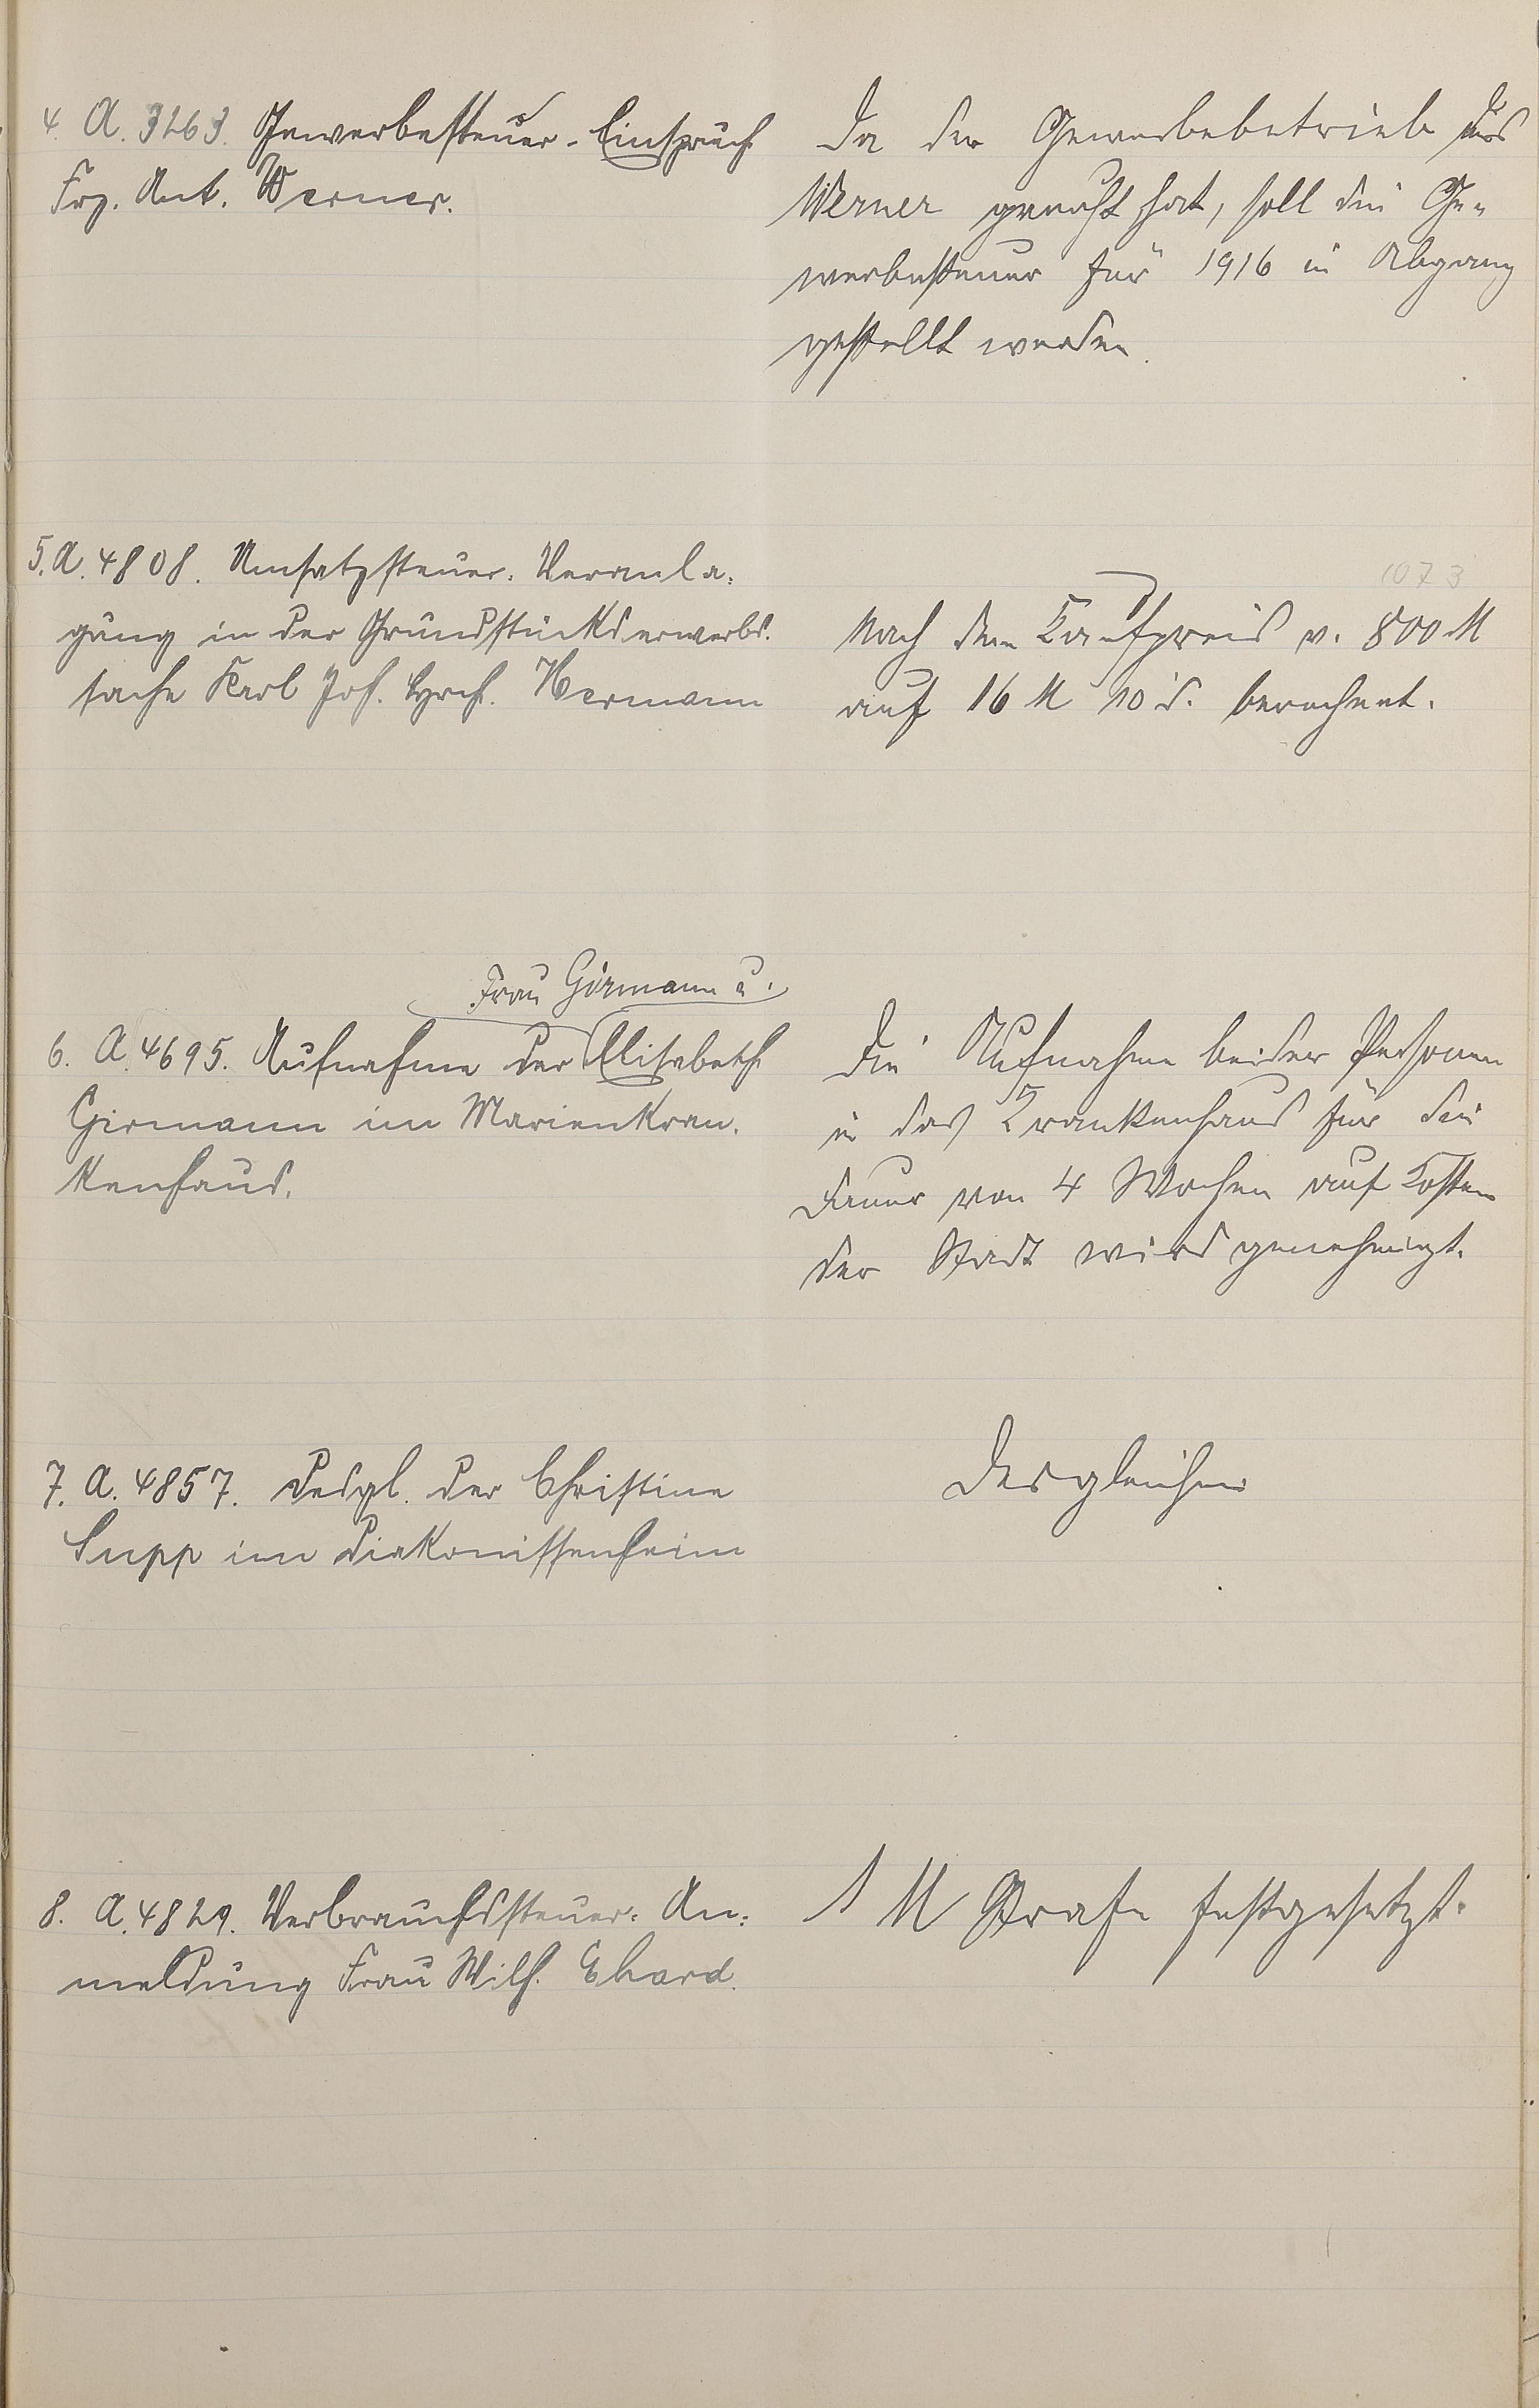 4. A. 3263. Gewerbesteuer-Einspruch
Frz. Ant. Werner.
Da der Gewerbebetrieb des
Werner geruht hat, soll die Ge-
werbesteuer für 1916 in Abgang
gestellt werden.
5. A. 4808. Umsatzsteuer-Veranla-
gung in der Grundstückserwerbs-
sache Karl Jos. Hermann
1073
Nach dem Kaufpreis v. 800 M
auf 16 M 10 d. berechnet.
Frau Girmann u.
6. A. 4695. Aufnahme der Elisabeth
Girmann im Marienkran-
kenhaus.
Die Aufnahme beider Personen
in das Krankenhaus für die
Dauer von 4 Wochen auf Kosten
der Stadt wird genehmigt.
7. A. 4857. Desgl. der Christine
Supp im Diakonissenheim
Desgleichen
8. A. 4829. Verbrauchssteuer-An-
meldung Frau Wilh. Ehard.
1 M Strafe festgesetzt.